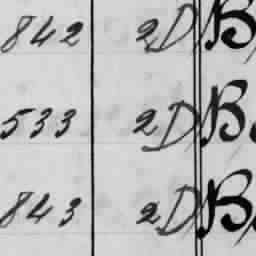 842 2D B
533 2D B
843 2D B